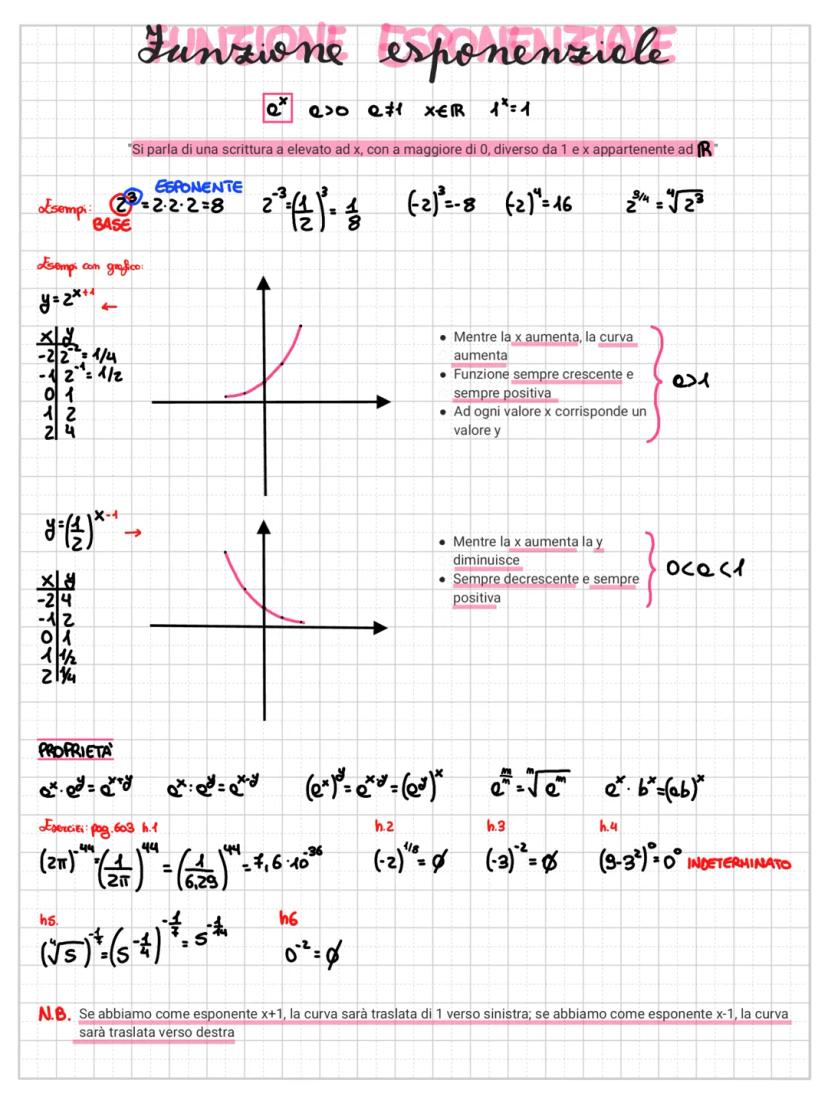 Funzione esponenziale
aˣ a>0 a≠1 x∈ℝ 1ˣ=1
"Si parla di una scrittura a elevato ad x, con a maggiore di 0, diverso da 1 e x appartenente ad ℝ"
Esempi: 2³=2·2·2=8 2⁻³=(1/2)³=1/8 (-2)³=-8 (-2)⁴=16 2^(3/4)=⁴√2³
ESPONENTE
BASE
Esempi con grafico:
y=2^(x+1) ←
x|y
-2|2⁻²=1/4
-1|2⁻¹=1/2
0|1
1|2
2|4
• Mentre la x aumenta, la curva
aumenta
• Funzione sempre crescente e
sempre positiva
• Ad ogni valore x corrisponde un
valore y
a>1
y=(1/2)^(x-1) →
x|y
-2|4
-1|2
0|1
1|1/2
2|1/4
• Mentre la x aumenta la y
diminuisce
• Sempre decrescente e sempre
positiva
0<a<1
PROPRIETA'
aˣ·aʸ=a^(x+y) aˣ:aʸ=a^(x-y) (aˣ)ʸ=a^(x·y)=(aʸ)ˣ a^(m/n)=ⁿ√aᵐ aˣ·bˣ=(ab)ˣ
Esercizi: pag.603 h.1 h.2 h.3 h.4
(2π)⁻⁴⁴=(1/2π)⁴⁴=(1/6,29)⁴⁴=7,6·10⁻³⁶ (-2)^(1/8)=∅ (-3)⁻²=∅ (9-3²)⁰=0⁰ INDETERMINATO
h5. h6
(⁴√5)^(-1/7)=(5^(-1/4))^(-1/7)=5^(-1/14) 0⁻²=∅
N.B. Se abbiamo come esponente x+1, la curva sarà traslata di 1 verso sinistra; se abbiamo come esponente x-1, la curva
sarà traslata verso destra